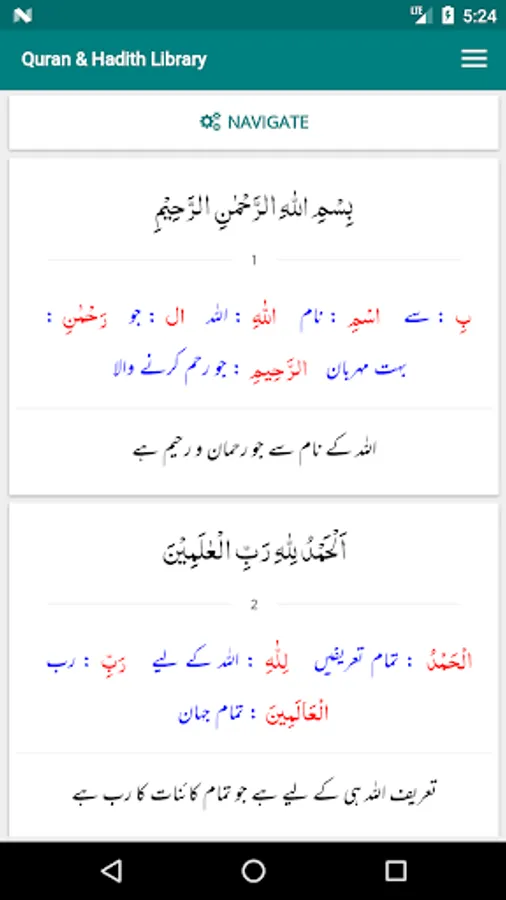 LTE 5:24
Quran & Hadith Library
NAVIGATE
بِسْمِ اللّٰهِ الرَّحْمٰنِ الرَّحِيْمِ
1
بِ : سے اسْمِ : نام اللّٰهِ : اللہ ال : جو رَحْمٰنِ :
بہت مہربان الرَّحِيمِ : جو رحم کرنے والا
اللہ کے نام سے جو رحمان و رحیم ہے
اَلْحَمْدُ لِلّٰهِ رَبِّ الْعٰلَمِيْنَ
2
الْحَمْدُ : تمام تعریفیں لِلّٰهِ : اللہ کے لیے رَبِّ : رب
الْعَالَمِينَ : تمام جہان
تعریف اللہ ہی کے لیے ہے جو تمام کائنات کا رب ہے